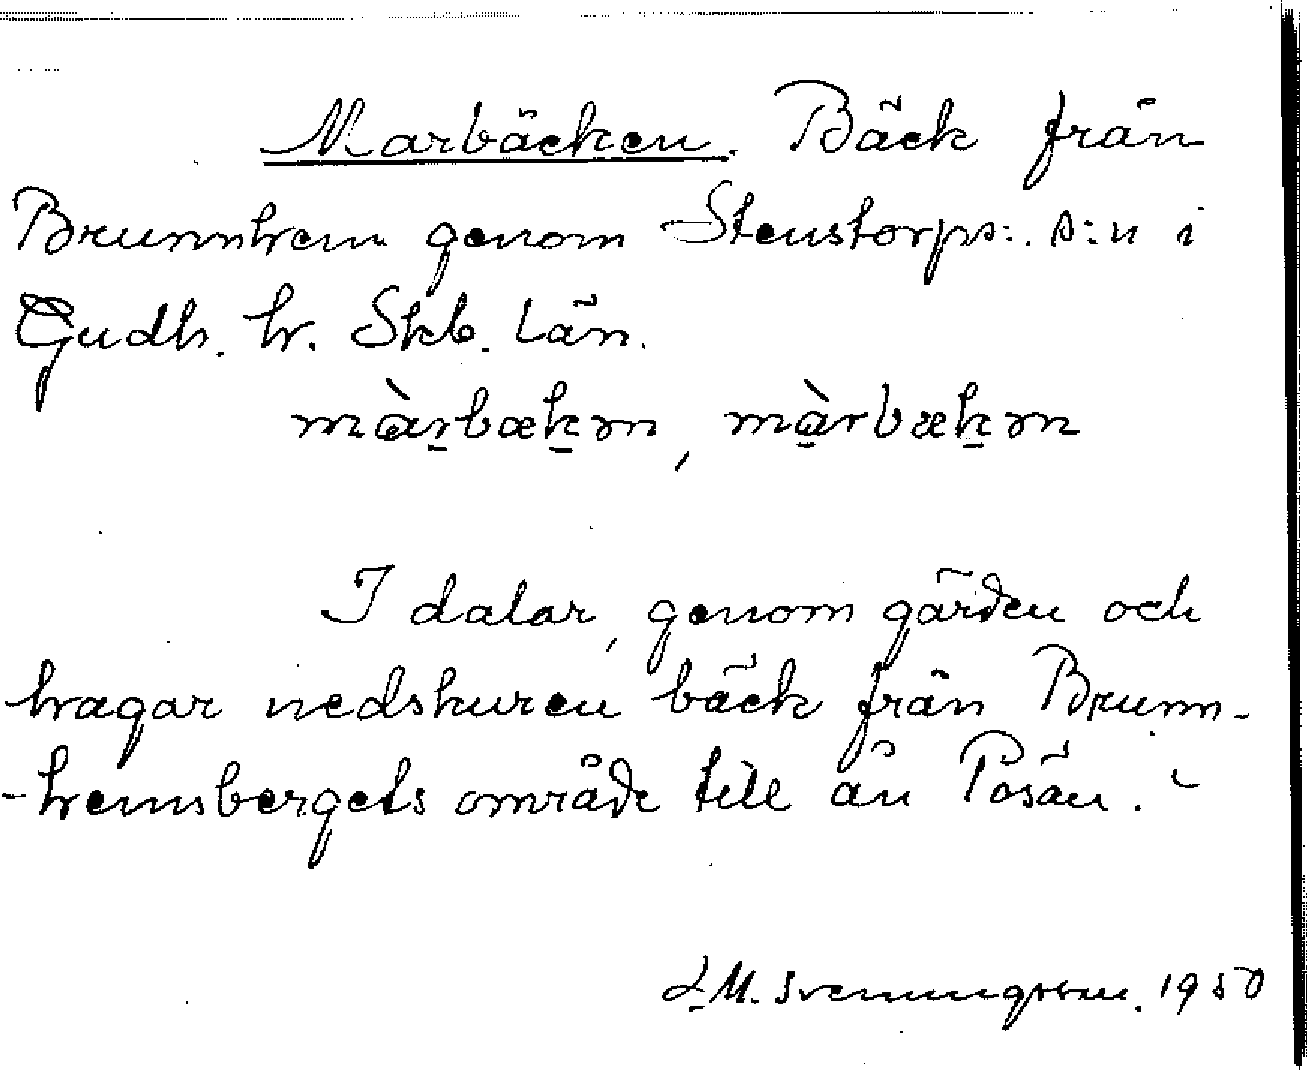 Marbäcken. Bäck från
Brunnhem genom Stenstorps:. s:n i
Gudh. hr. Skb. Län.
màrbækən, màrbækən
I dalar, genom gärden och
hagar nedskuren bäck från Brunn-
-hemsbergets område till ån Pösån.
L.M. Svenungsson. 1950